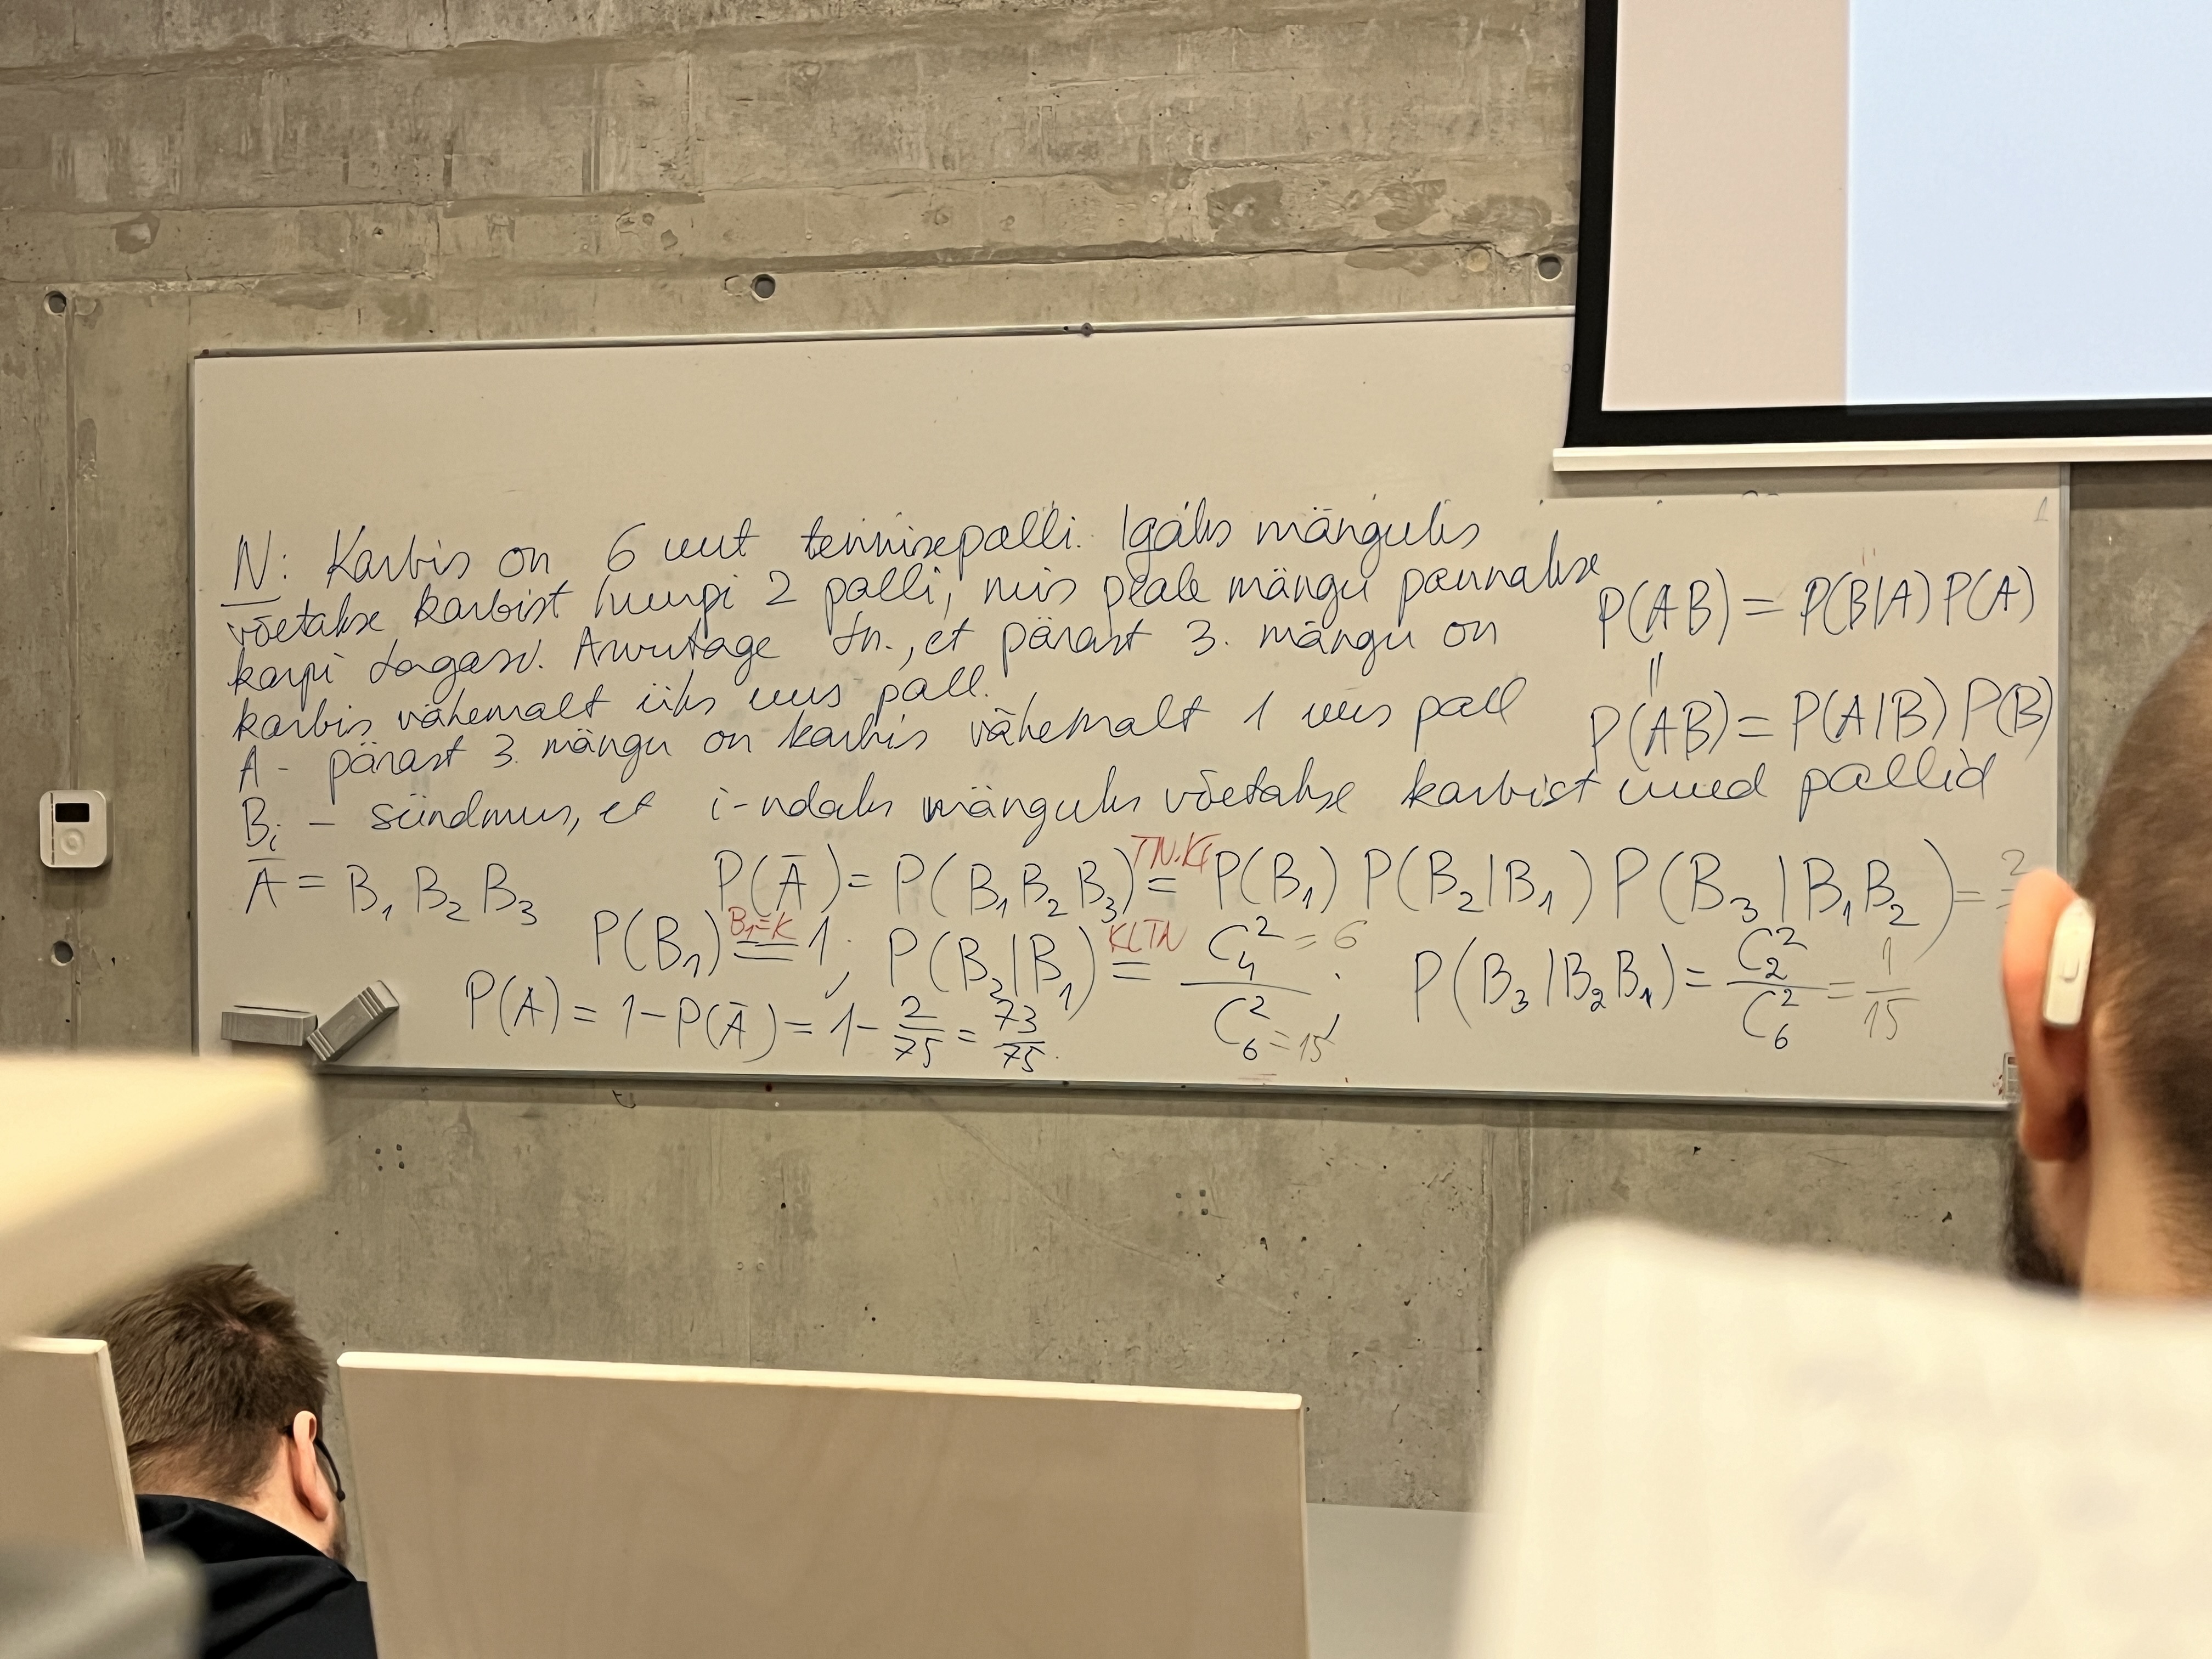 N: Karbis on 6 uut tennisepalli. Igaks mänguks
võetakse karbist 2 palli, mis peale mängu pannakse
karpi tagasi. Arvutage tn., et pärast 3. mängu on
karbis vähemalt üks uus pall.
A - pärast 3. mängu on karbis vähemalt 1 uus pall
B_i - sündmus, et i-ndaks mänguks võetakse karbist uued pallid
P(AB) = P(B|A) P(A)
||
P(AB) = P(A|B) P(B)
Ā = B₁ B₂ B₃ P(Ā) = P(B₁B₂B₃) = P(B₁) P(B₂|B₁) P(B₃|B₁B₂) = 2
TN.KL
P(B₁) = 1; P(B₂|B₁) = C₄² = 6 / C₆² = 15; P(B₃|B₂B₁) = C₂² / C₆² = 1/15
B₁=K KLTN
P(A) = 1 - P(Ā) = 1 - 2/75 = 73/75.